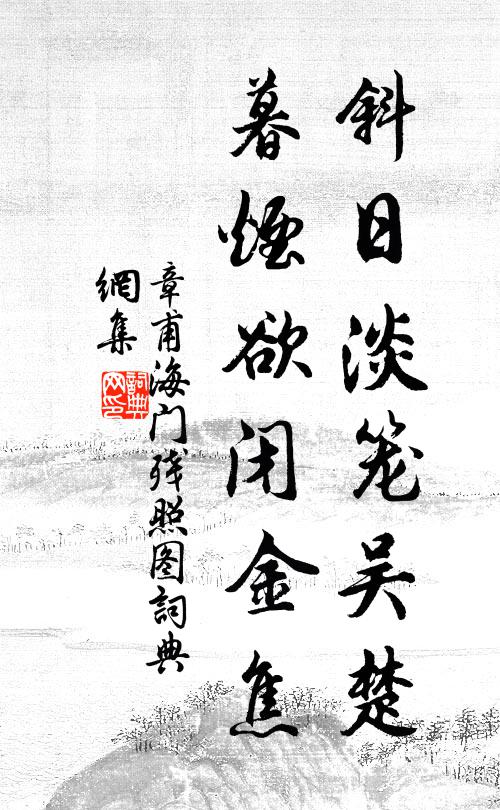 斜日淡笼吴楚
暮烟欲闭金焦
章甫海门残照图詞典
網集
詞典
网印